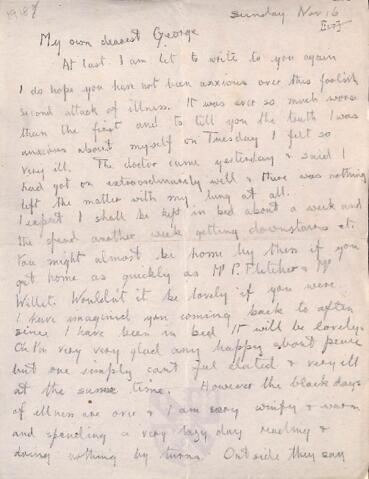 Sunday Nov 16
My own dearest George
At last I am let to write to you again
I do hope you have not been anxious over this foolish
second attack of illness. It was ever so much worse
than the first and to tell you the truth I was
anxious about myself on Tuesday I felt so
very ill. The doctor came yesterday & said I
had got on extraordinarily well & there was nothing
left the matter with my lung at all.
I expect I shall be kept in bed about a week and
the spend another week getting downstairs etc.
You might almost be home by then if you
get home as quickly as Mr P. Fletcher & Mr
Willet. Wouldn't it be lovely if you were
I have imagined you coming back to often
since I have been in bed It will be lovely.
Oh I'm very very glad and happy about peace
but one simply cant feel elated & very ill
at the same time. However the black days
of illness are over & I am very comfy & warm
and spending a very lazy day reading &
doing nothing by turns. Outside they say